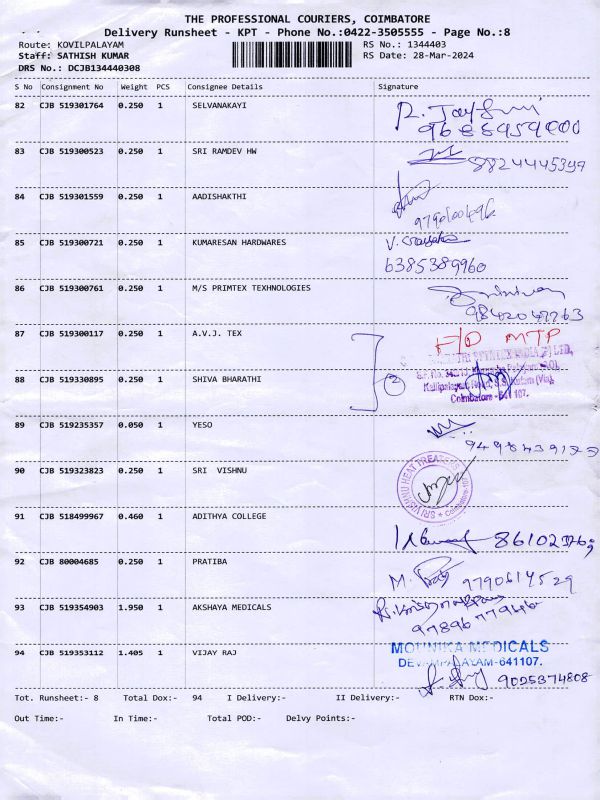 THE PROFESSIONAL COURIERS, COIMBATORE
Delivery Runsheet - KPT - Phone No.:0422-3505555 - Page No.:8
Route: KOVILPALAYAM RS No.: 1344403
Staff: SATHISH KUMAR RS Date: 28-Mar-2024
DRS No.: DCJB134440308
S No Consignment No Weight PCS Consignee Details Signature
82 CJB 519301764 0.250 1 SELVANAKAYI
83 CJB 519300523 0.250 1 SRI RAMDEV HW
84 CJB 519301559 0.250 1 AADISHAKTHI
85 CJB 519300721 0.250 1 KUMARESAN HARDWARES
6385389960
86 CJB 519300761 0.250 1 M/S PRIMTEX TEXHNOLOGIES
87 CJB 519300117 0.250 1 A.V.J. TEX
F/O MTP
88 CJB 519330895 0.250 1 SHIVA BHARATHI
2
Coimbatore - 641 107.
89 CJB 519235357 0.050 1 YESO
90 CJB 519323823 0.250 1 SRI VISHNU
SRI VISHNU HEAT TREATERS
91 CJB 518499967 0.460 1 ADITHYA COLLEGE
92 CJB 80004685 0.250 1 PRATIBA
9790614529
93 CJB 519354903 1.950 1 AKSHAYA MEDICALS
94 CJB 519353112 1.405 1 VIJAY RAJ
MOUNIKA MEDICALS
DEVAMPALAYAM-641107.
9025374808
Tot. Runsheet:- 8 Total Dox:- 94 I Delivery:- II Delivery:- RTN Dox:-
Out Time:- In Time:- Total POD:- Delvy Points:-